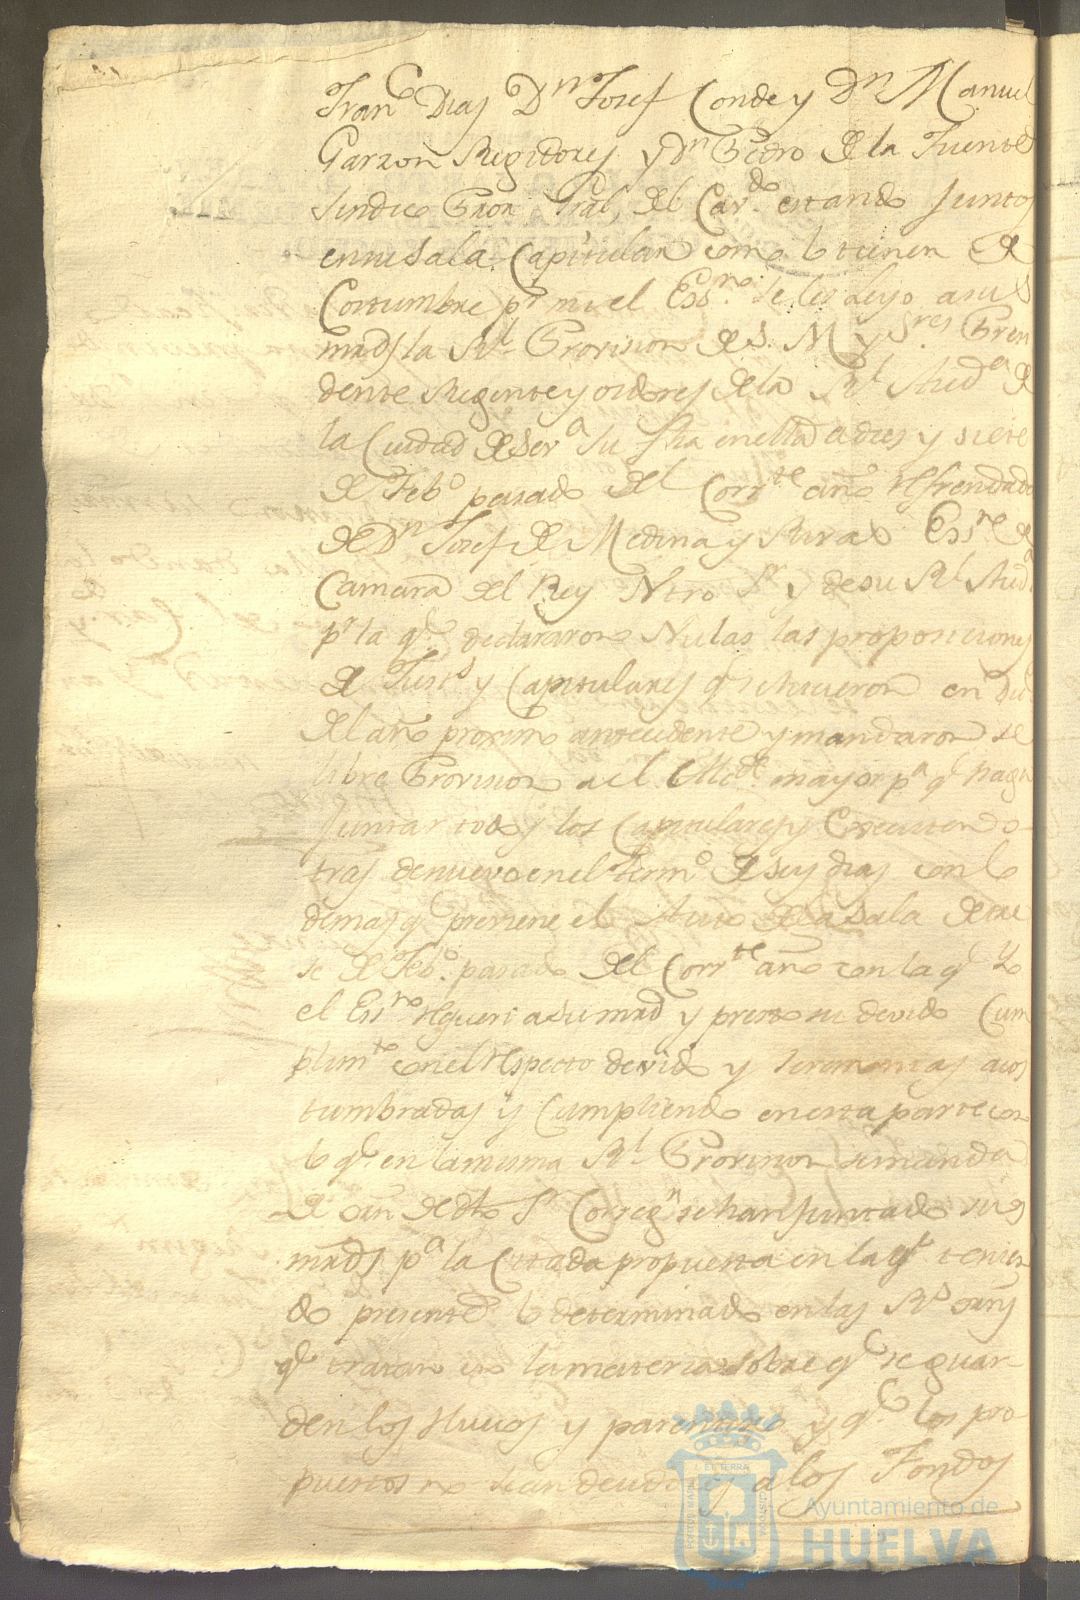 Fran.co Dias Dn Josef Conde y Dn Manuel
Garzon Regidores y Dn Pedro de la Fuente
Sindico Pror Gral, del Car.do estando Juntos
en su Sala Capitular como lo tienen de
Costumbre pr mi el Essno se les leyo a sus
mrds la Rl Provision de S. M y Sres
dente Regente y oidores de la Rl Auda de
la Ciudad de Seva su fha en ella a dies y siete
de Febo pasado del Corrte año refrendada
de Dn Josef de Medina y Essno de
Camara del Rey Ntro Sr y de su Rl Auda
pr la q.e declararon Nulas las proposiciones
de Justs y Capitulares q.e se hicieron en
del año proximo antecedente y mandaron se
libre Provision a el Alcde mayor pa q.e haga
Juntar todos los Capitulares y Executen o-
tras de nuevo en el termo de seis dias con lo
demas q.e previene el Auto de la Sala de tre
se de Febo. pasado del Corrte año con la q.e Yo
el Essno requeri a su mrd y presto su devido Cum
plimto con el respecto devido y seremonias acos
tumbradas y Cumpliendo en esta parte con
lo q.e en la misma Rl Provision se manda
de orn de dho Sr Corregr se han Juntado sus
mrds pa la Citada propuesta en la q.e tenien
do presente lo determinado en las Rs orns
q.e tratan en la materia sobre q.e se guar-
den los Huecos y parentesco y q.e los pro
puestos no sean deudores a los Fondos
Ayuntamiento de
HUELVA